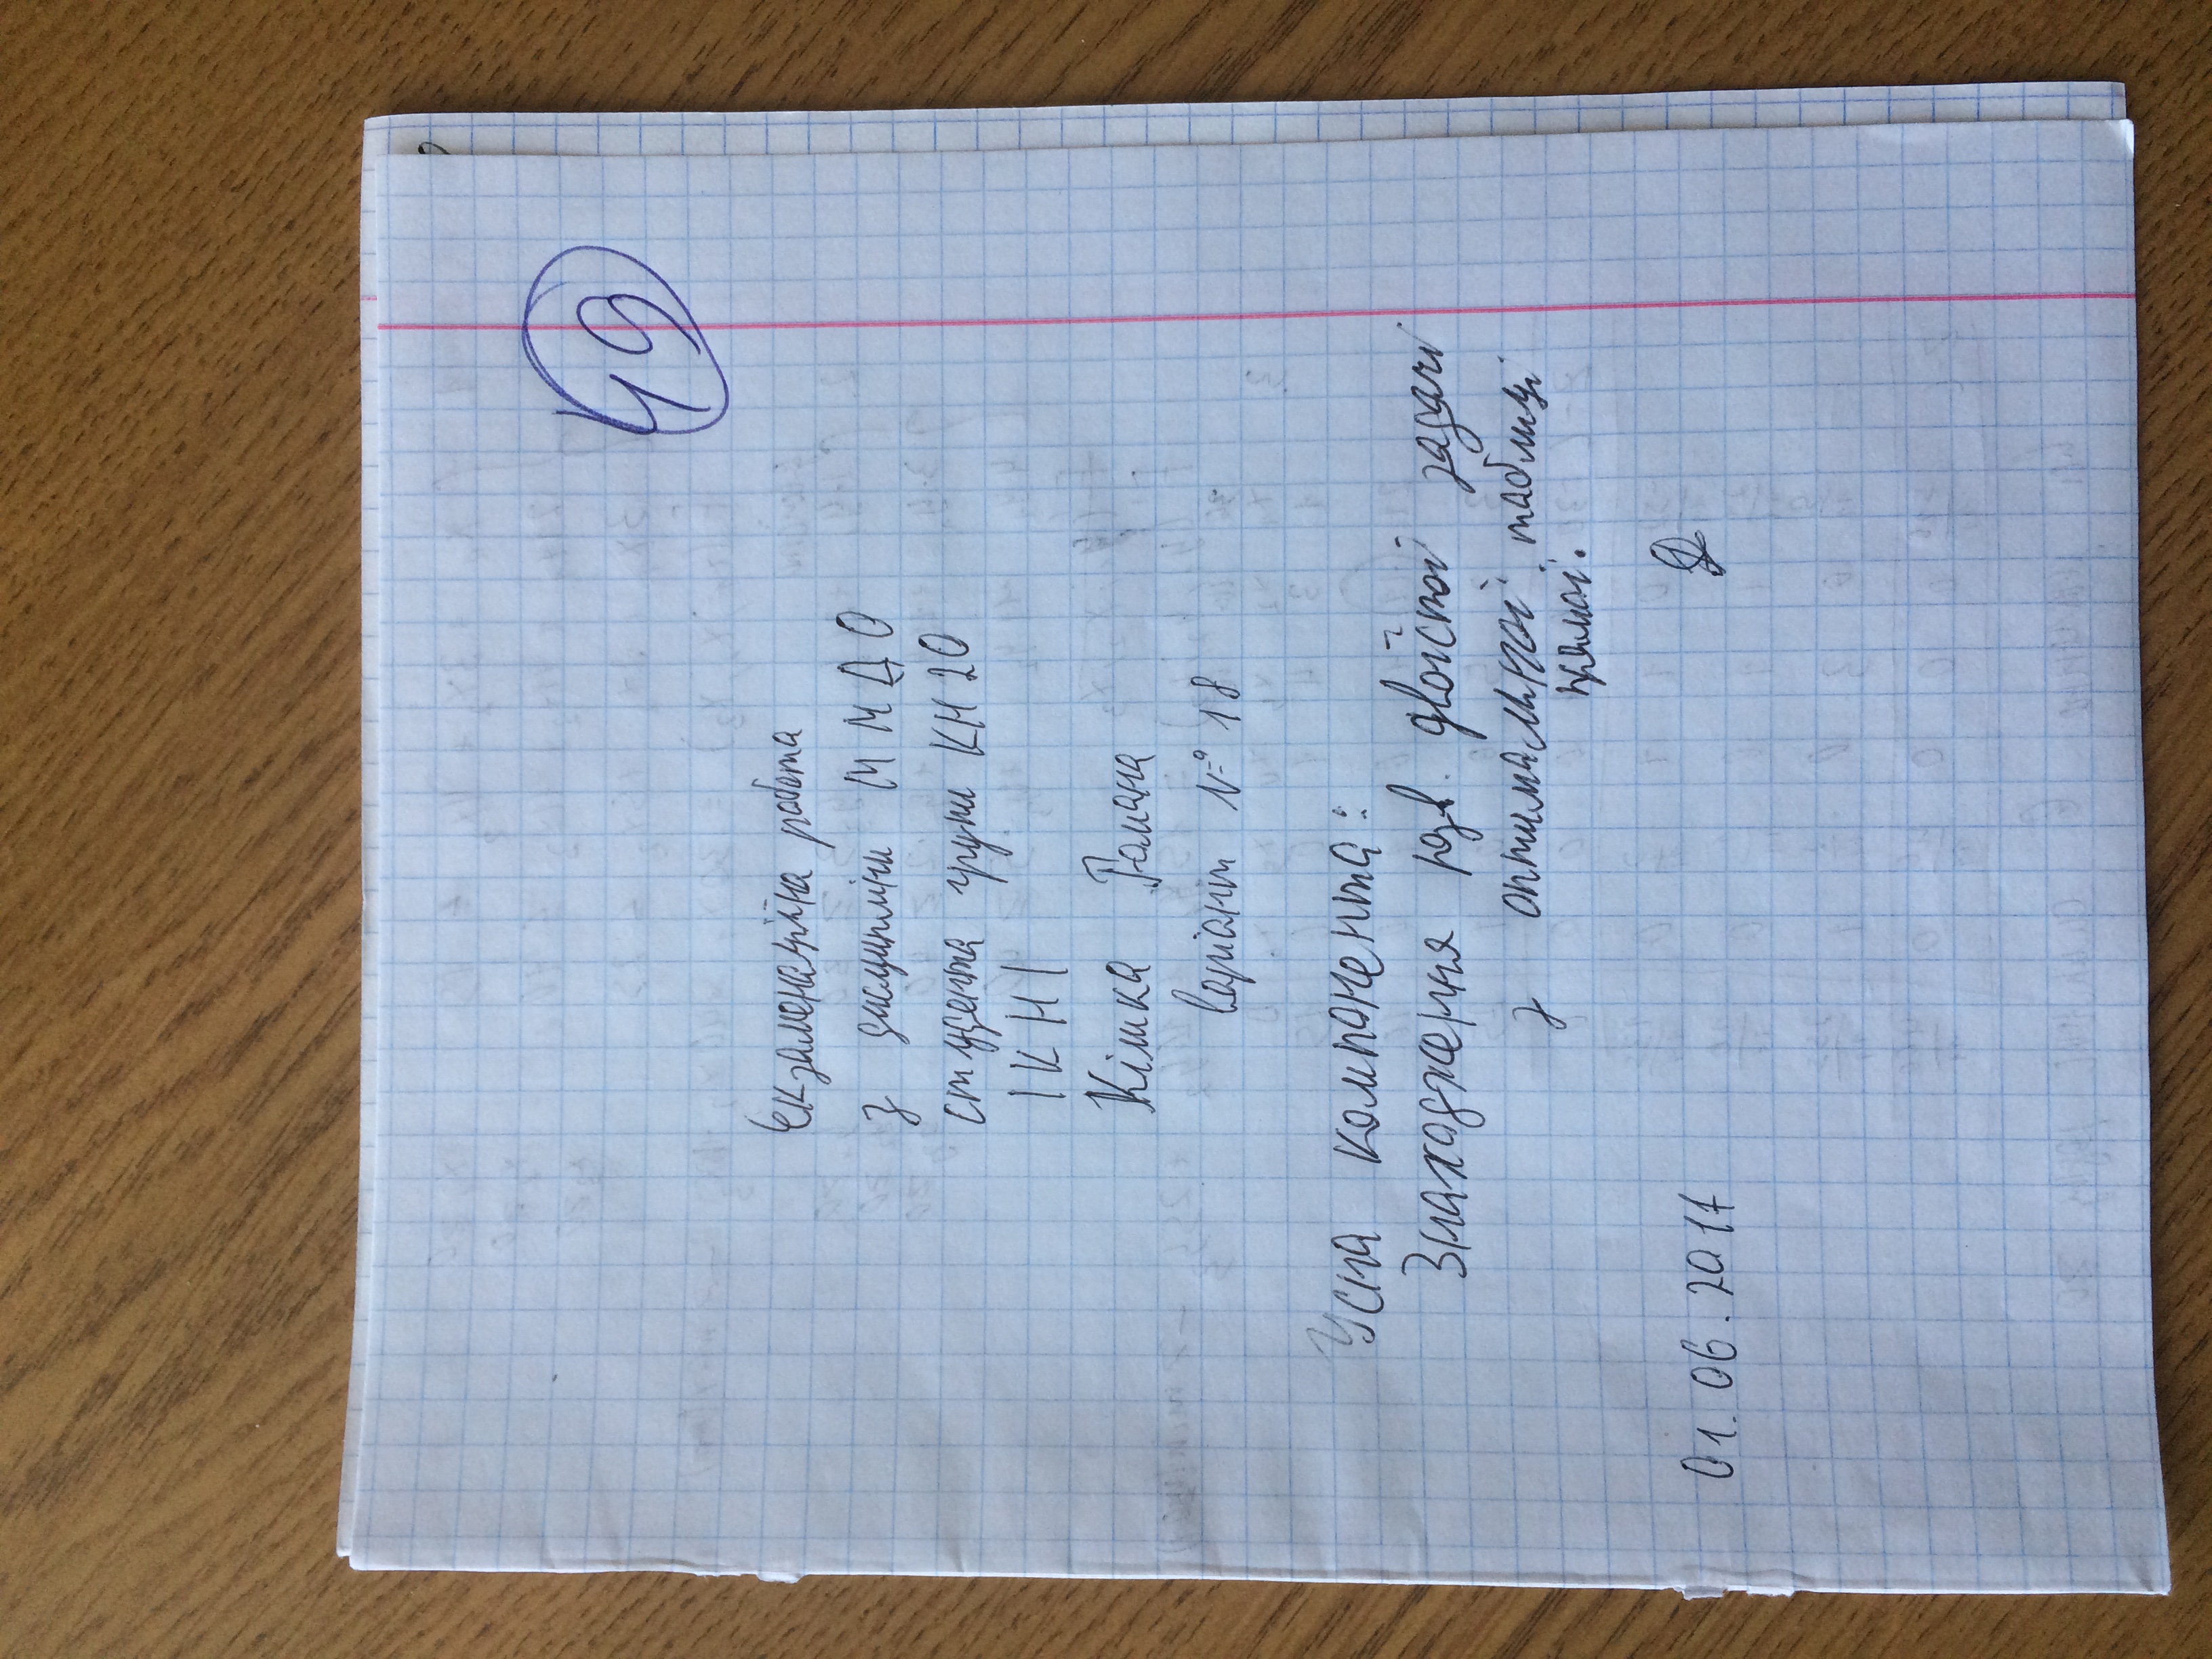 49
Екзаменаційна робота
з дисципліни ММДО
студента групи КН20
ІКНІ
Кішка Романа
варіант №18
Усна компонента:
Знаходження розв. двоїстої задачі
з оптимальної таблиці
прямої.
01.06.2017